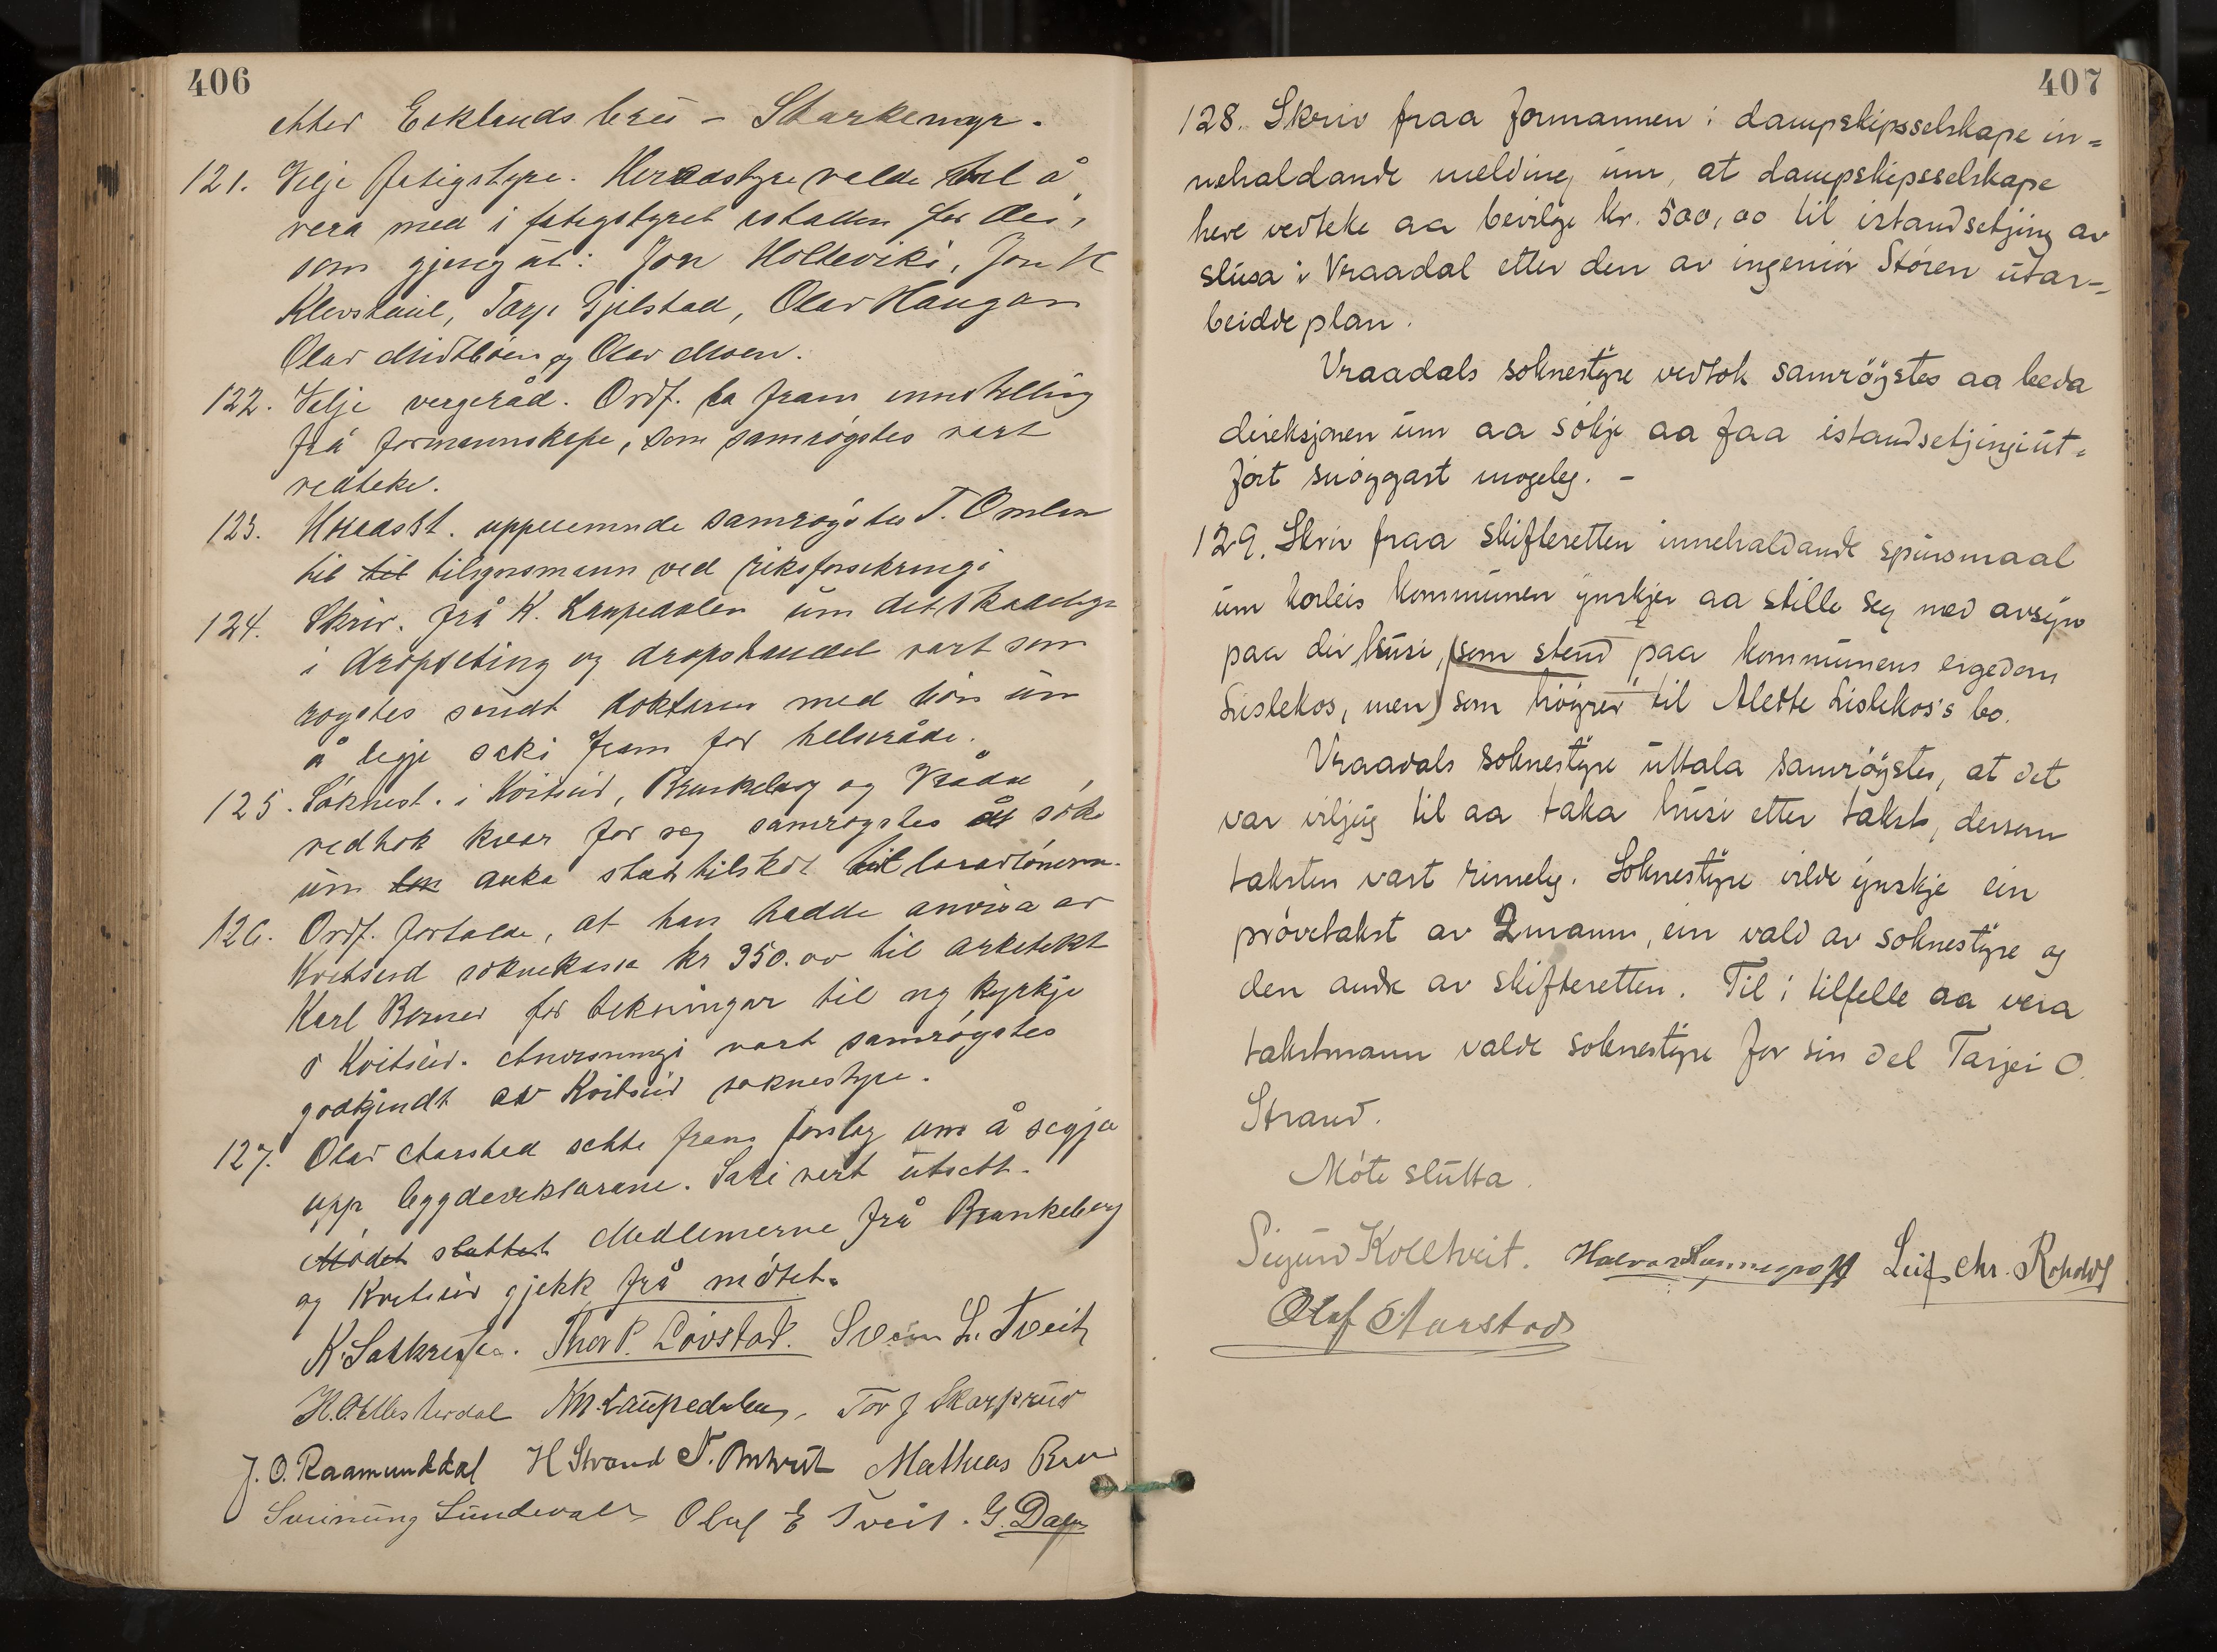 406
etter Eeklands bru - Starkemyr.
121. Velje fatigstyre. Heradstyre valde til å
vera med i fatigstyret istaden for dei,
som gjeng út: Jon Holtevik, Jon K
Klevstaúl, Tarje Gjelstad, Olav Haugan
Olav Midtbøen og Olav Moen.
122. Velje vergeråd. Ordf. la fram innstilling
frå formannskape, som samrøgstes vart
vedteke.
123. Heradsst. uppnemnde samrøgstes T. Omlen
til til tilsynsmann ved riksforsikringi
124. Skriv. frå K. Laupedalen úm det skadelege
i dropseting og dropshandel vart sam
røgstes sendt doktaren med bón úm
å legje saki fram for helseråde.
125. Sóknest. i Kvitseid, Brunkeberg og Vrådal
vedtok kvar for seg samrøgstes å søke
úm auka stats tilskot til lærarlónirne.
126. Ordf. fortalde, at han hadde anvisa av
Kvitseid soknekassa kr 350.00 til arkitekt
Karl Berner for tekningar til ny kyrkje
i Kvitseid. Anvisningi vart samrøgstes
godkjendt av Kvitseid soknestyre.
127. Olav Aarstad sette fram forslag um å segja
upp. Saki vert útsett.
Mødet sluttet Medlemerne frå Brunkeberg
og Kvitseid gjekk frå mótet.
Thor P. Lövstad. Svein L. Tveit
H. O. Mesterdal Kn. Laúpedalen, Tov J Skarprúd
J. O. Raamunddal H Strand Mathias Bru
Sveinúng Súndvall Oluf E Tveit. G. Dalen
407
128. Skriv fraa formannen i dampskipsselskape in=
nehaldande melding úm, at dampskipsselskape
heve vedteke aa bevilge kr. 500,00 til istandsetjing av
slúsa i Vraadal etter den av ingeniór Stóren útar-
beidde plan.
Vraadals soknestyre vedtok samróystes aa beda
direksjonen úm aa sókje aa faa istandsetjingi út=
fórt snóggast mogeleg. -
129. Skriv fraa skifteretten innehaldande spúrsmaal
úm korleis kommúnen ynskjer aa stille seg med avsyn
paa dei húsi, (som stend paa kommúnens eigedom
Lislekos, men) som hóyrer til Alette Lislekos's bo.
Vraadals soknestyre úttala samróystes, at det
var viljúg til aa taka húsi etter takst, dersom
taksten vart rimeleg. Soknestyre vilde ynskje ein
próvetakst av 2 mann, ein vald av soknestyre og
den andre av skifteretten. Til i tilfelle aa vera
takstmann valde soknestyre for sin del Tarjei O.
Strand.
Móte slútta.
Sigúrd Kolltveit. Leif Chr. Roholdt
Olaf Aarstad